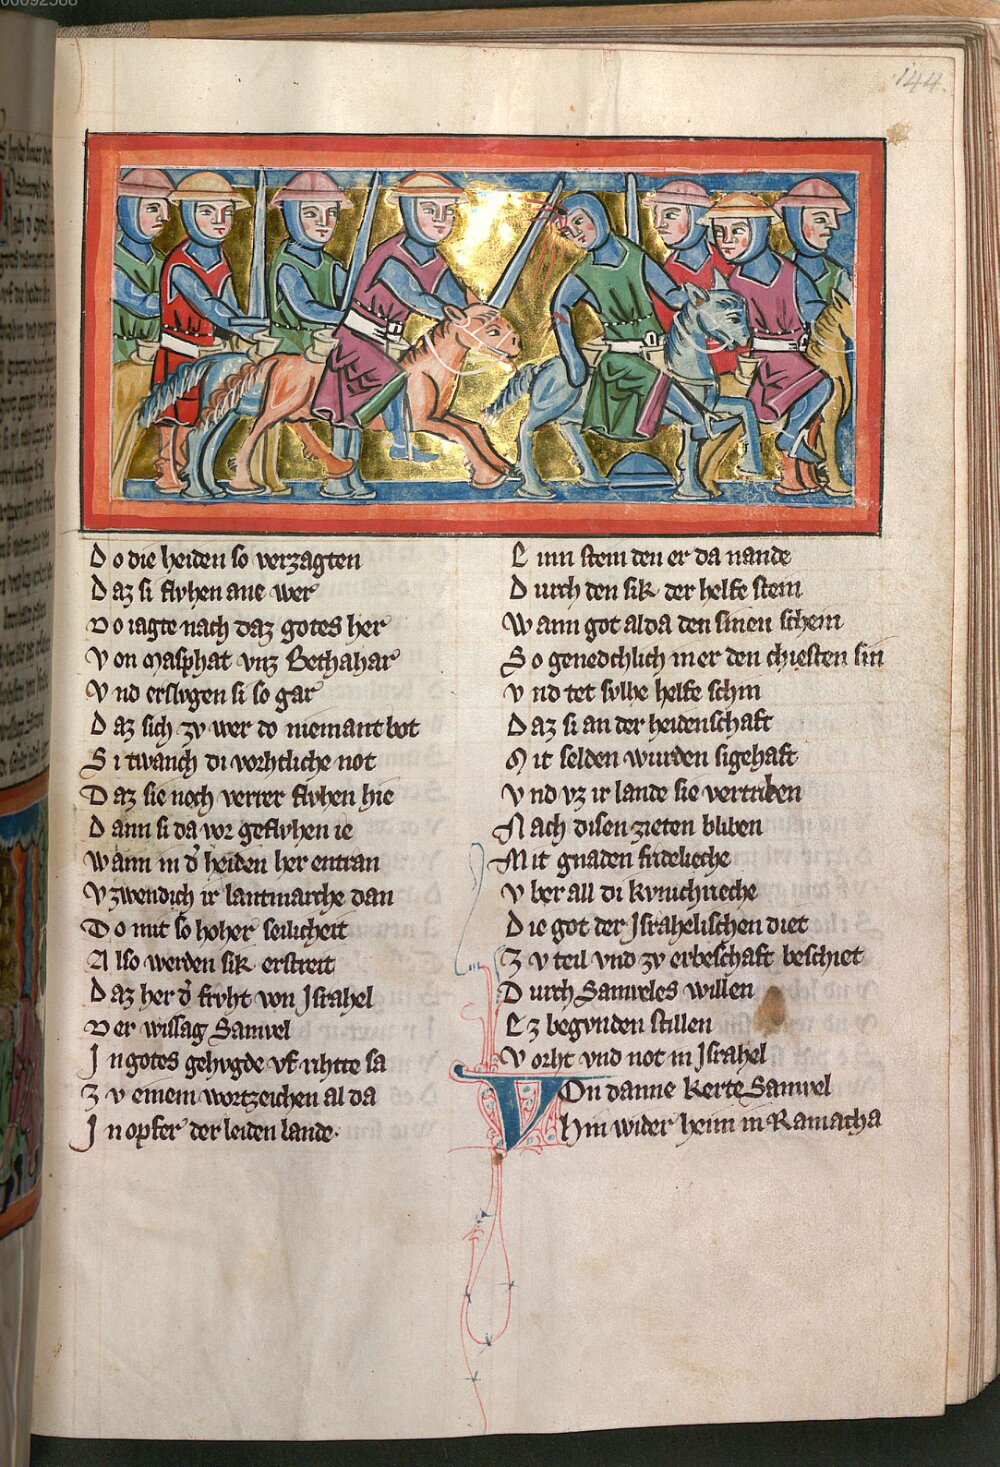 00092588
144
Do die heiden so verzagten
Daz si flvhen ane wer
Do iagte nach daz gotes her
Von Masphat vnz Bethahar
Vnd erslvgen si so gar
Daz sich zv wer do niemant bot
Si twanch di vorhtliche not
Daz sie noch verrer flvhen hie
Dann si da vor geflvhen ie
Wann in d͛ heiden her entran
Vzwendich ir lantmarche dan
Do mit so hoher seilicheit
Also werden sik erstreit
Daz her d͛ frvht von Israhel
Der wissag Samvel
In gotes gehvgde vf rihtte sa
Zv einem wortzeichen al da
In opfer der leiden lande.
Einn stein den er da nande
Durch den sik der helfe stein
Wann got alda den sinen schein
So genedchlich mer den chiesten sin
Vnd tet svlhe helfe schin
Daz si an der heidenschaft
Mit selden wurden sigehaft
Vnd vz ir lande sie vertriben
Nach disen zieten bliben
Mit gnaden fridelieche
Vber all di kvnichrieche
Die got der Israhelischen diet
Zv teil vnd zv erbeschaft beschiet
Durch Samveles willen
Ez begvnden stillen
Vorht vnd not in Israhel
Von danne kerte Samvel
Hin wider heim in Ramatha